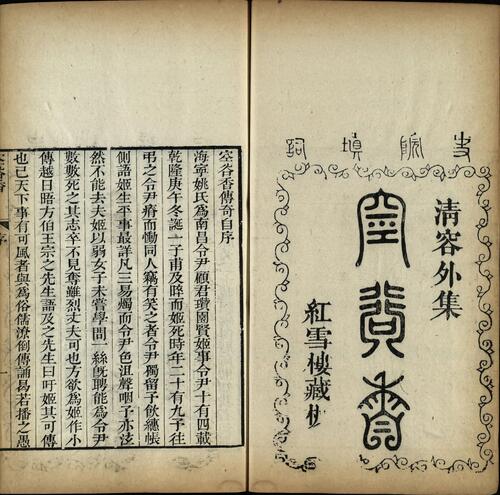 史院填詞
清容外集
空谷香
紅雪樓藏板
空谷香傳奇自序
海寧姚氏爲南昌令尹顧君瓚園賢姬事令尹十有四載
乾隆庚午冬誕一子甫及晬而姬死時年二十有九予往
弔之令尹瘠而慟同人竊有笑之者令尹獨留予飲繐帳
側語姬生平事最詳凡三易燭而令尹色沮聲咽予亦泫
然不能去夫姬以弱女子未嘗學問一絲旣聘能爲令尹
數數死之其志卒不見奪雖烈丈夫可也方欲爲姬作小
傳越日晤方伯王宗之先生語及之先生曰吁姬其可傳
也已天下事有可風者與爲俗儒潦倒傳誦曷若播之愚
序
一